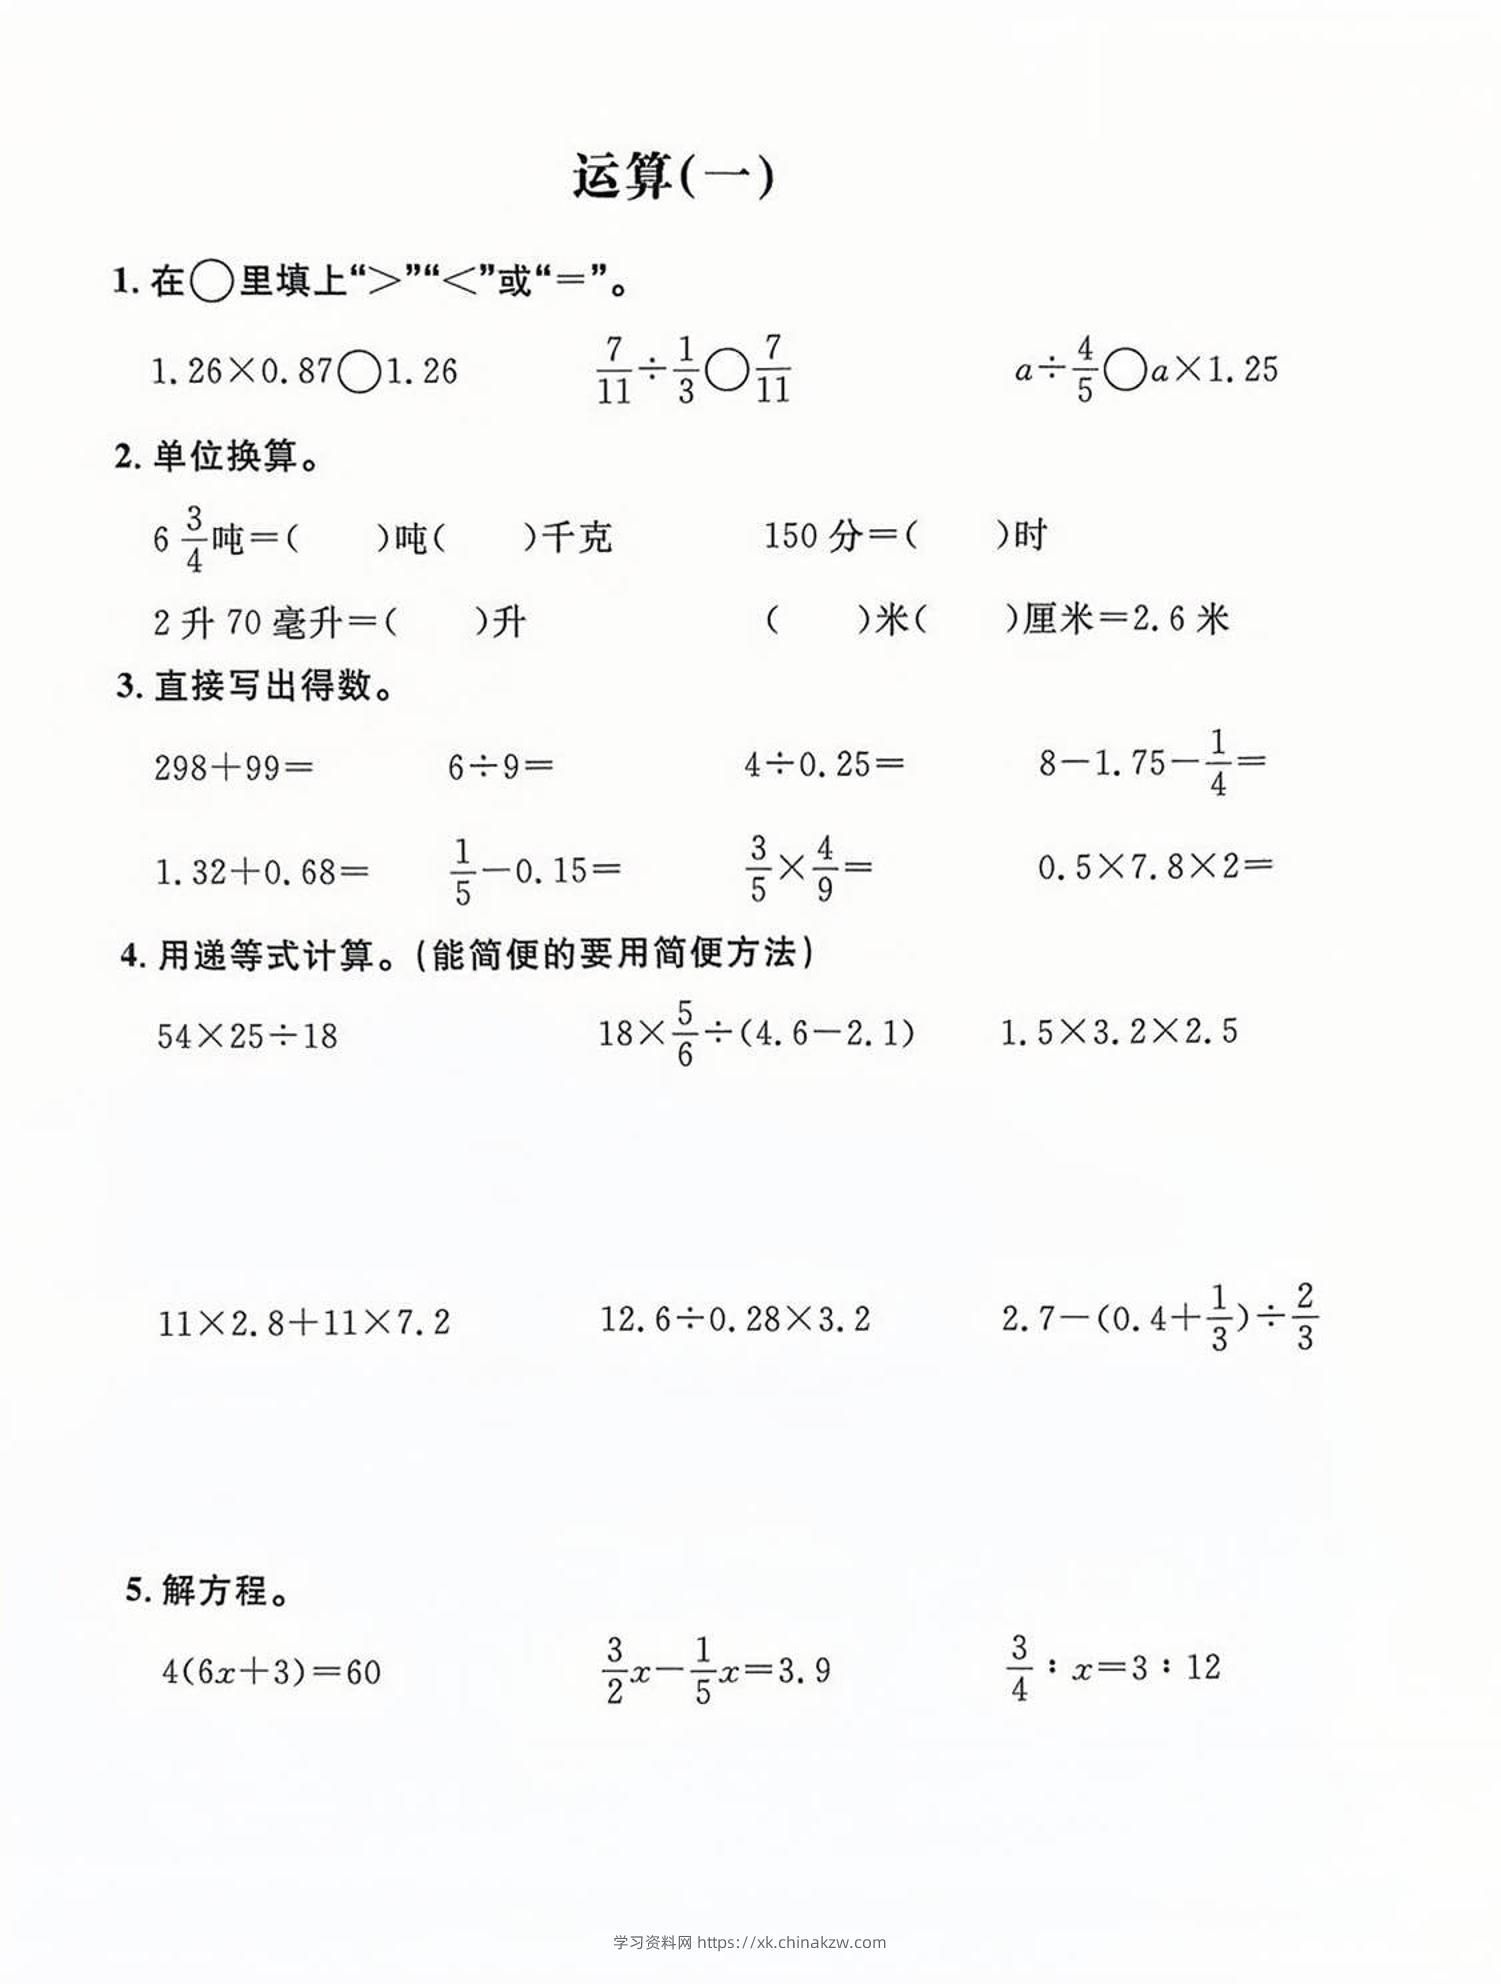 运算(一)
1. 在○里填上“>”“<”或“=”。
1.26×0.87○1.26 7/11÷1/3○7/11 a÷4/5○a×1.25
2. 单位换算。
6 3/4吨=( )吨( )千克 150分=( )时
2升70毫升=( )升 ( )米( )厘米=2.6米
3. 直接写出得数。
298+99= 6÷9= 4÷0.25= 8-1.75-1/4=
1.32+0.68= 1/5-0.15= 3/5×4/9= 0.5×7.8×2=
4. 用递等式计算。(能简便的要用简便方法)
54×25÷18 18×5/6÷(4.6-2.1) 1.5×3.2×2.5
11×2.8+11×7.2 12.6÷0.28×3.2 2.7-(0.4+1/3)÷2/3
5. 解方程。
4(6x+3)=60 3/2x-1/5x=3.9 3/4:x=3:12
学习资料网 https://xk.chinakzw.com